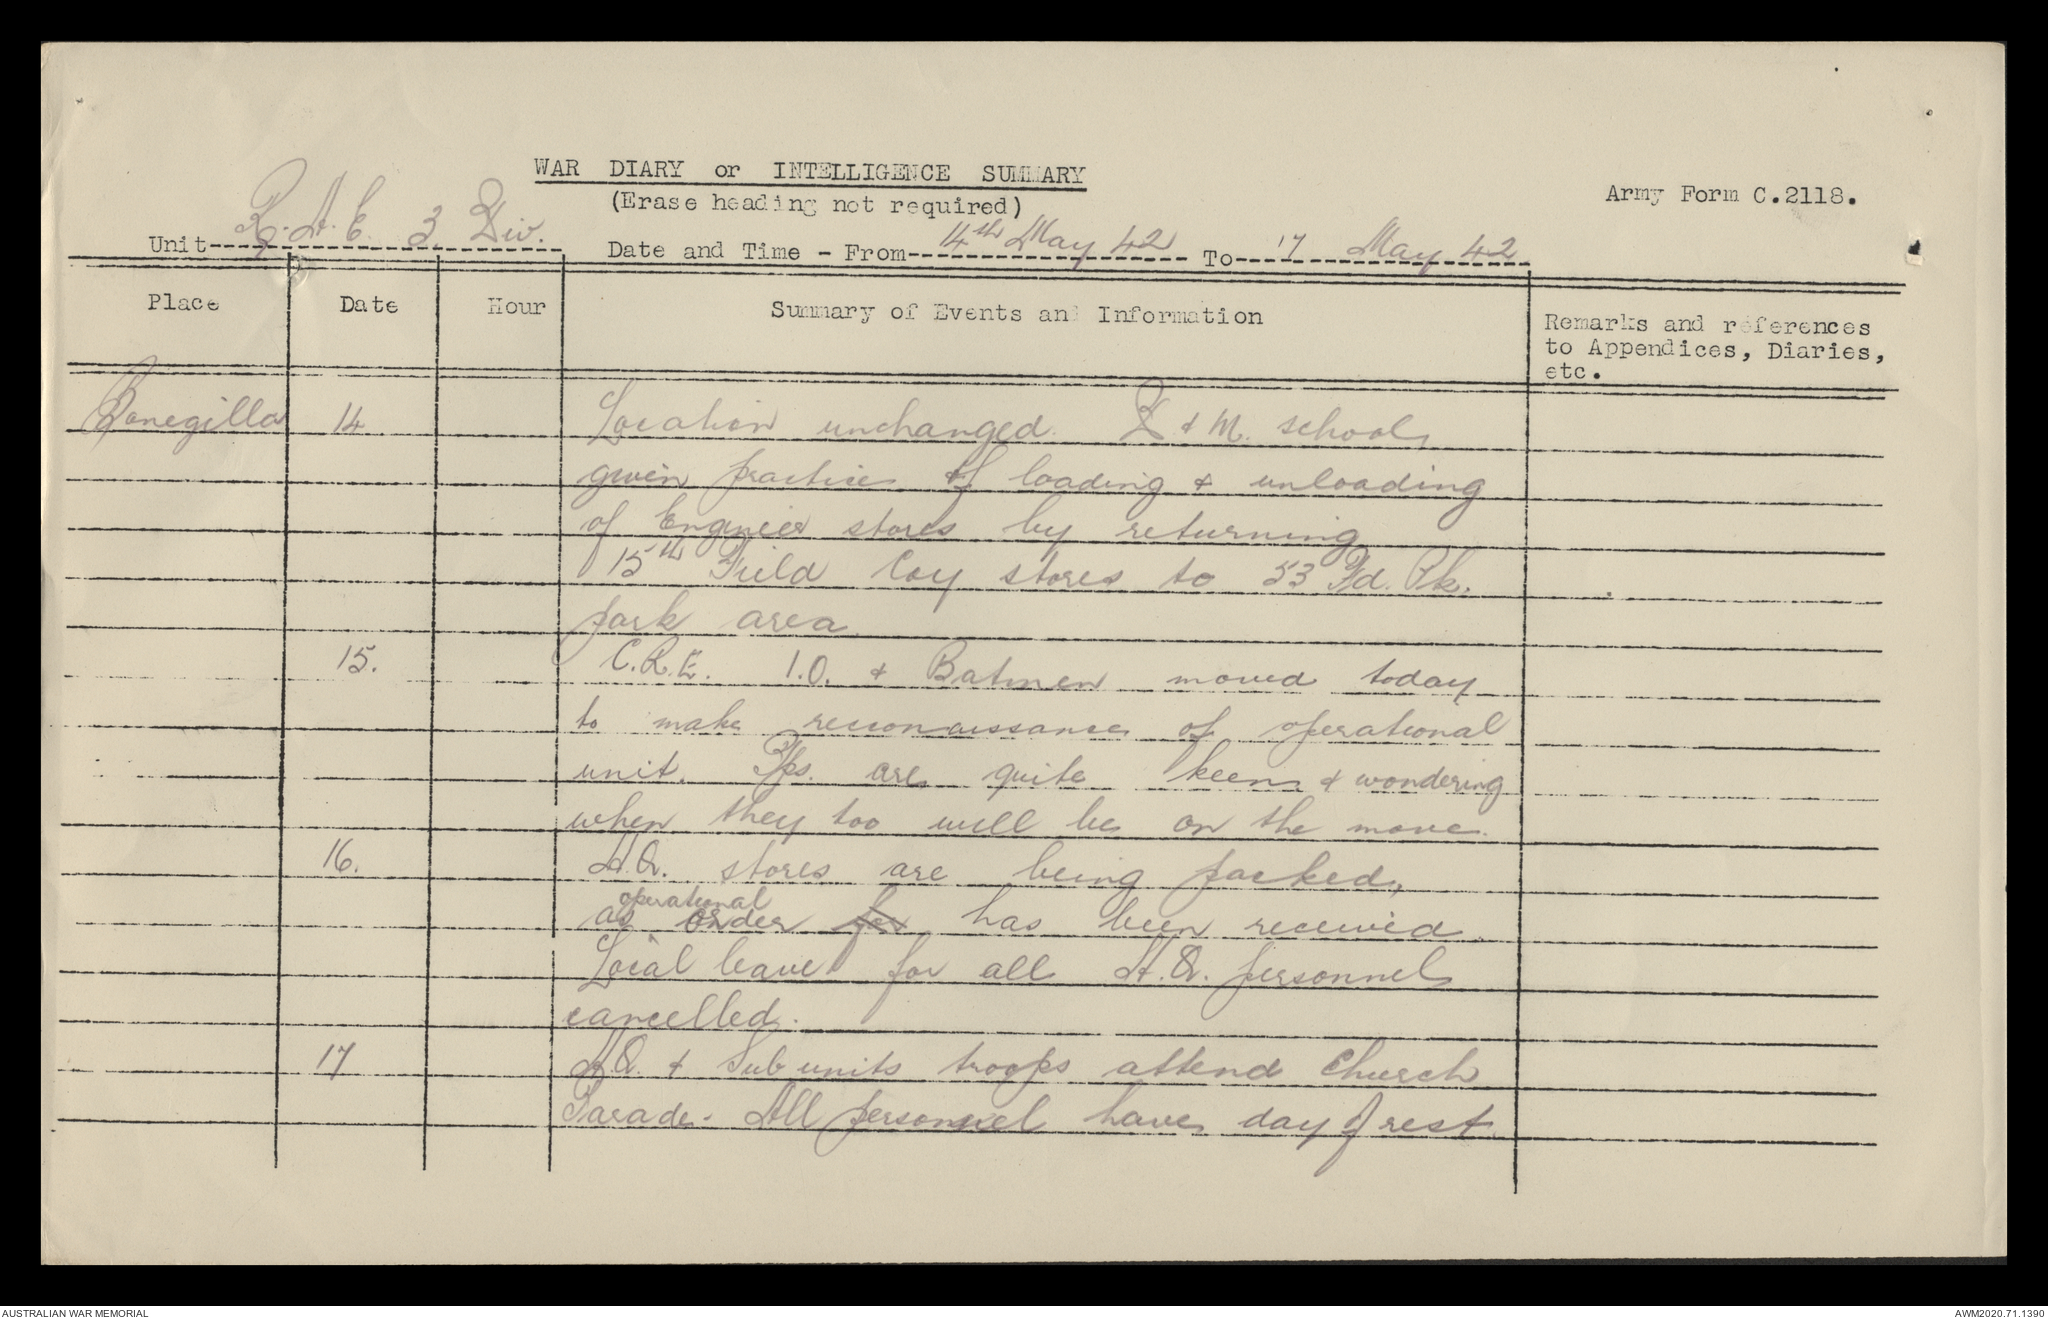 WAR DIARY or INTELLIGENCE SUMMARY
(Erase heading not required)
Army Form C.2118.
Unit R.A.E. 3 Div. Date and Time - From 14th May 42 To 17 May 42
Place Date Hour Summary of Events and Information Remarks and references
to Appendices, Diaries,
etc.
Bonegilla 14 Location unchanged. D & M. school
given practice of loading & unloading
of Engineer stores by returning
15th Field Coy stores to 53 Fd. Pk.
park area.
15. C.R.E. I.O. & Batmen moved today
to make reconnaissance of operational
unit. Tps. are quite keen & wondering
when they too will be on the move.
16. H.Q. stores are being packed,
operational
as order for has been received.
Local leave for all H.Q. personnel
cancelled.
17 H.Q. & Sub units troops attend Church
Parade. All personnel have day of rest.
AUSTRALIAN WAR MEMORIAL AWM2020.71.1390